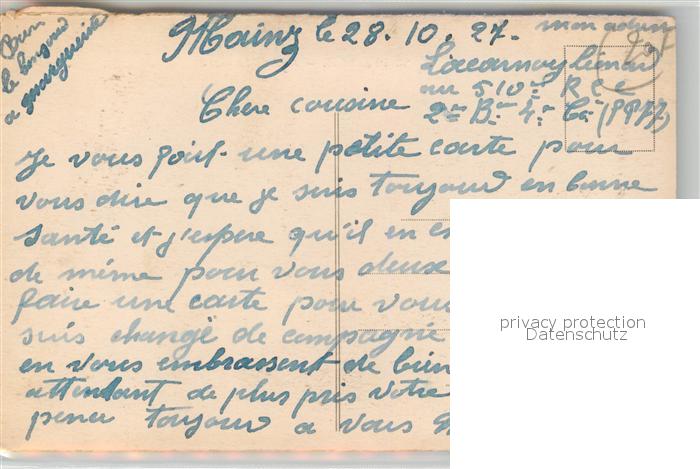 Mainz le 28.10.27.
mon adress
Lacarnoy
au 510e R C C
2me B.on 4.e Cie (PP77)
bien
le bonjour
a marguerite
Chere cousine
Je vous fait une petite carte pour
vous dire que je suis toujour en bonne
santé et j'espere qu'il en es
de même pour vous deux
faire une carte pour vous
suis changé de compagnie
en vous embrassent de bien
attendant de plus pris votre
penser toujour a vous
privacy protection
Datenschutz